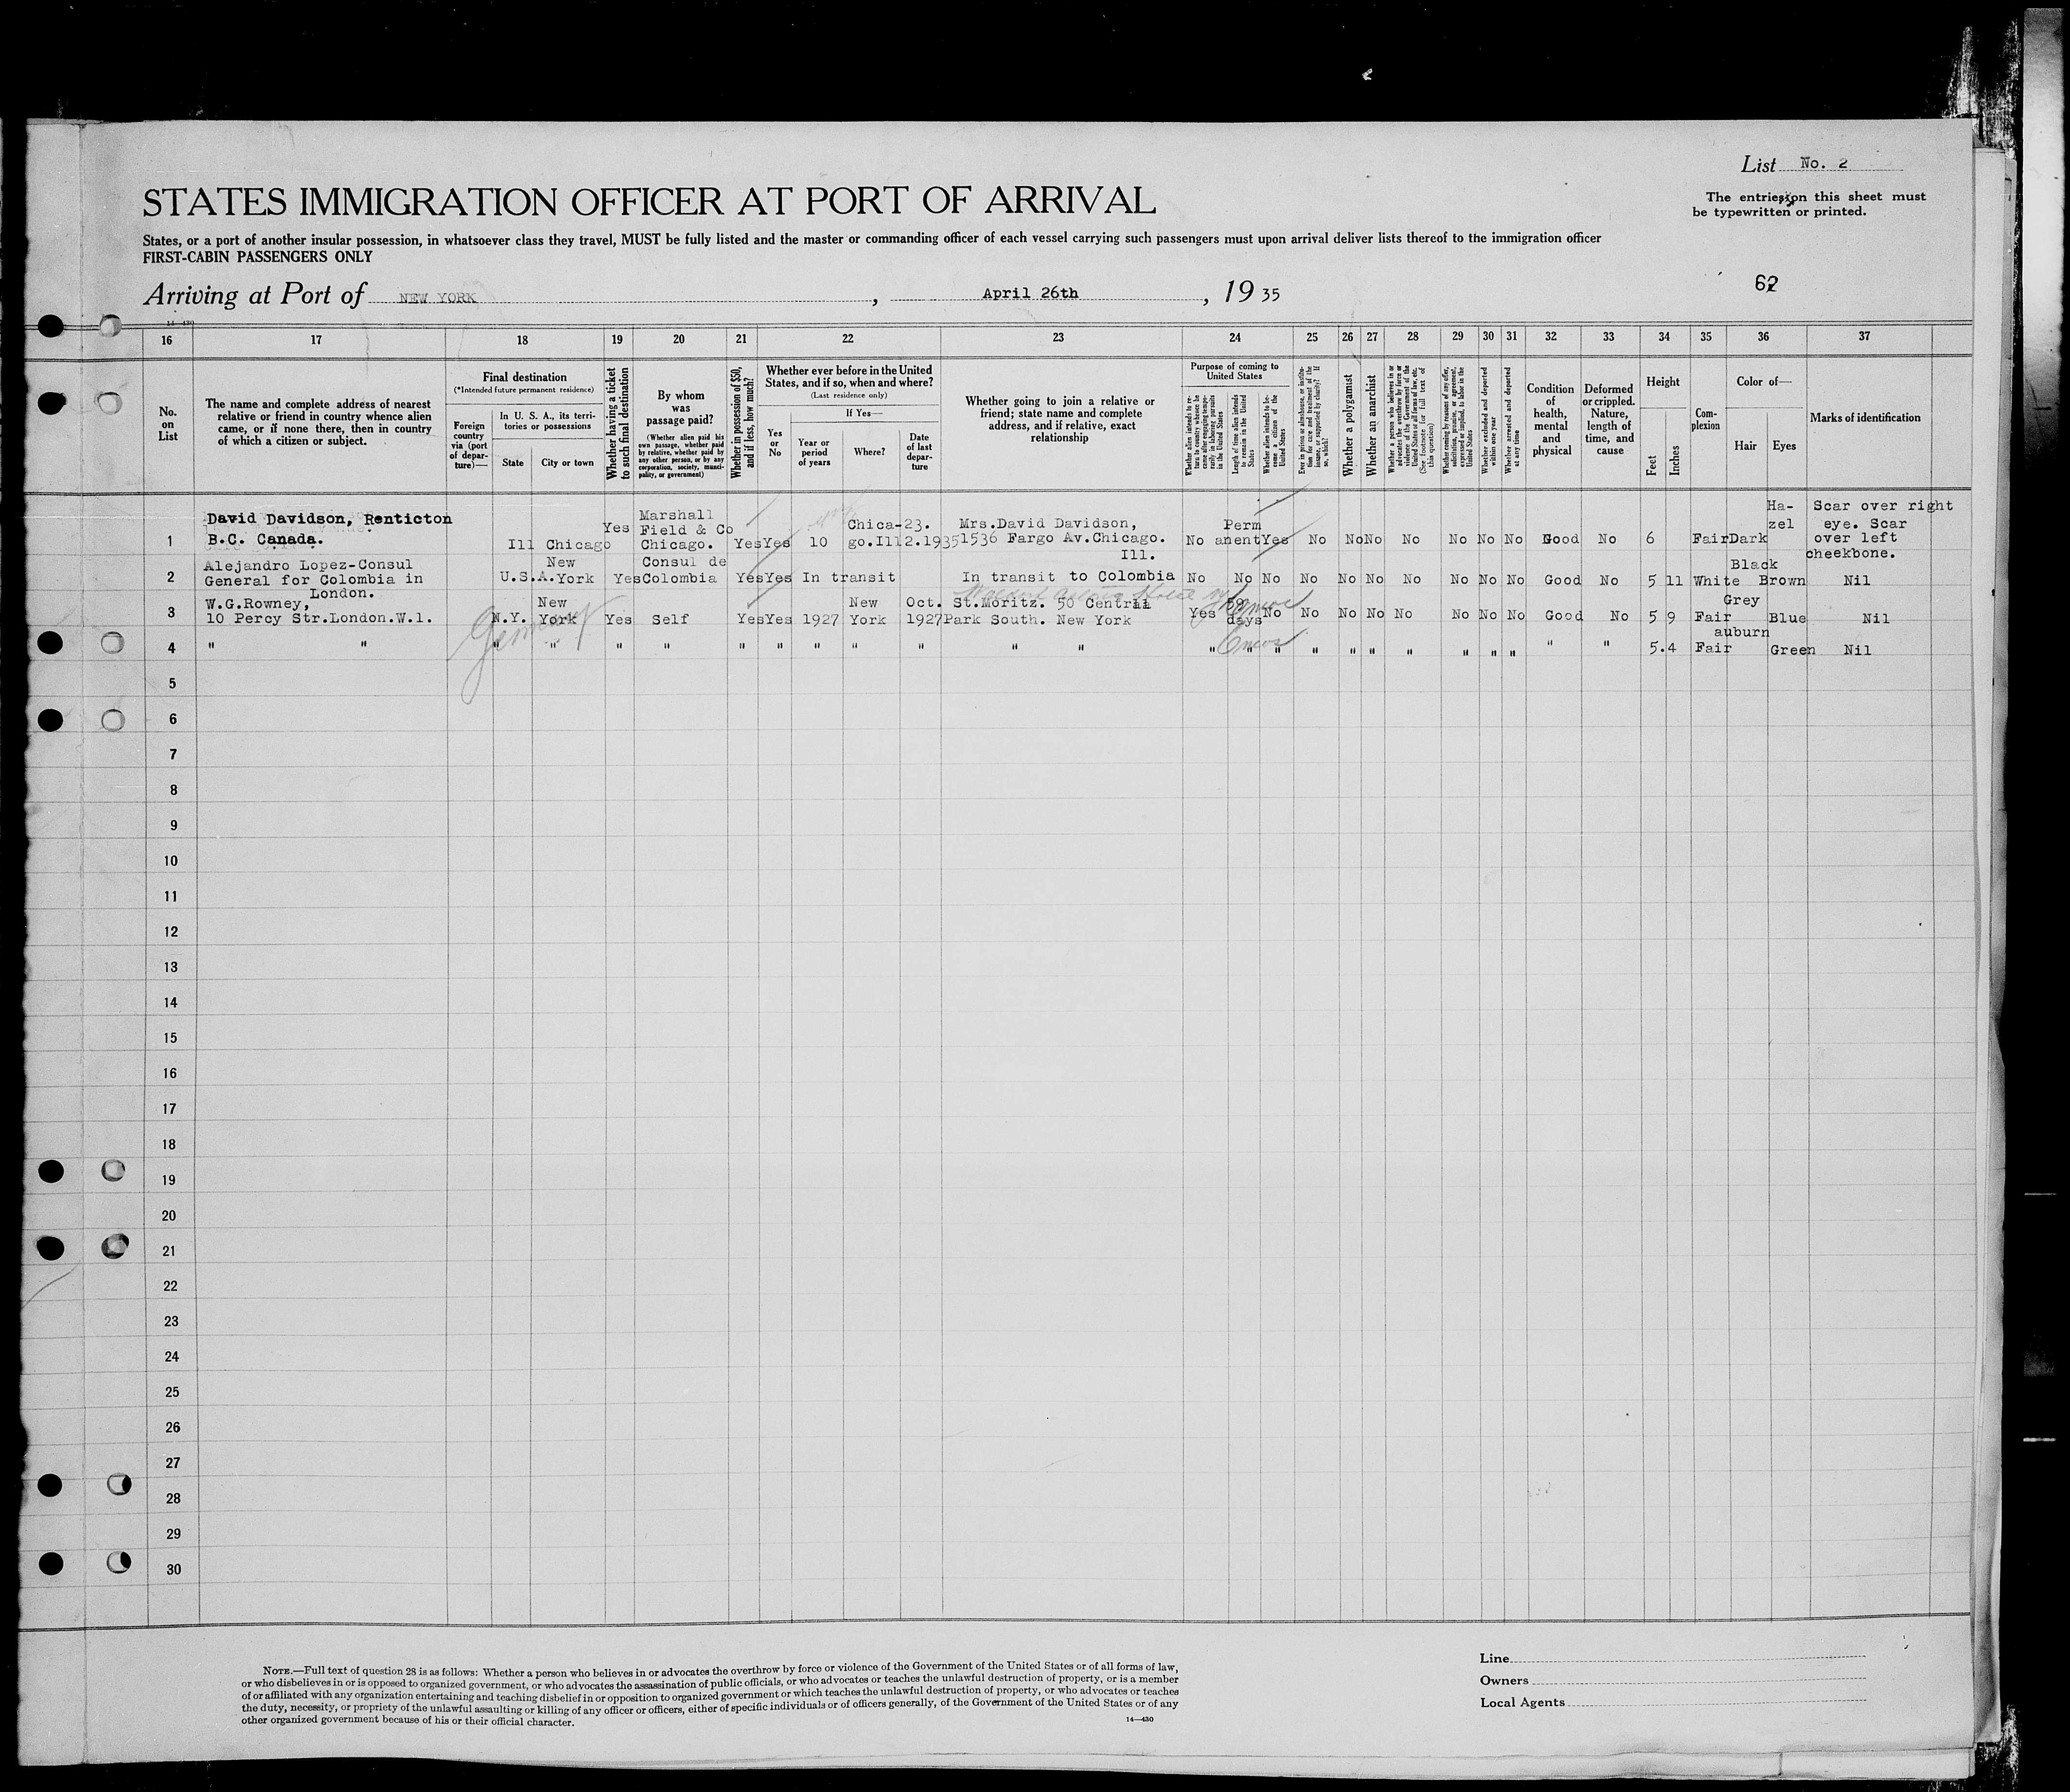 List No. 2
STATES IMMIGRATION OFFICER AT PORT OF ARRIVAL
The entries on this sheet must
be typewritten or printed.
States, or a port of another insular possession, in whatsoever class they travel, MUST be fully listed and the master or commanding officer of each vessel carrying such passengers must upon arrival deliver lists thereof to the immigration officer
FIRST-CABIN PASSENGERS ONLY
Arriving at Port of NEW YORK, April 26th, 1935
62
14—430
16 17 18 19 20 21 22 23 24 25 26 27 28 29 30 31 32 33 34 35 36 37
No.
on
List
The name and complete address of nearest
relative or friend in country whence alien
came, or if none there, then in country
of which a citizen or subject.
Final destination
(*Intended future permanent residence)
Foreign
country
via (port
of depar-
ture)—
In U. S. A., its terri-
tories or possessions
State
City or town
Whether having a ticket
to such final destination
By whom
was
passage paid?
(Whether alien paid his
own passage, whether paid
by relative, whether paid by
any other person, or by any
corporation, society, munici-
pality, or government)
Whether in possession of $50,
and if less, how much?
Whether ever before in the United
States, and if so, when and where?
(Last residence only)
Yes
or
No
If Yes—
Year or
period
of years
Where?
Date
of last
depar-
ture
Whether going to join a relative or
friend; state name and complete
address, and if relative, exact
relationship
Purpose of coming to
United States
Whether alien intends to re-
turn to country whence he
came after engaging tempo-
rarily in laboring pursuits
in the United States
Length of time alien intends
to remain in the United
States
Whether alien intends to be-
come a citizen of the
United States
Ever in prison or almshouse, or institu-
tion for care and treatment of the
insane, or supported by charity? If
so, which?
Whether a polygamist
Whether an anarchist
Whether a person who believes in or
advocates the overthrow by force or
violence of the Government of the
United States or all forms of law, etc.
(See footnote for full text of
this question)
Whether coming by reason of any offer,
solicitation, promise, or agreement,
expressed or implied, to labor in the
United States
Whether excluded and deported
within one year
Whether arrested and deported
at any time
Condition
of
health,
mental
and
physical
Deformed
or crippled.
Nature,
length of
time, and
cause
Height
Feet
Inches
Com-
plexion
Color of—
Hair
Eyes
Marks of identification
1 David Davidson, Renticton
B.C. Canada.
Ill Chicago Yes
Marshall
Field & Co
Chicago.
Yes Yes 10
Chica-
go.Ill
23.
2.1935
Mrs.David Davidson,
1536 Fargo Av.Chicago.
Ill.
No
Perm
anent
Yes No No No No No No No Good No 6 Fair Dark
Ha-
zel
Scar over right
eye. Scar
over left
cheekbone.
2 Alejandro Lopez-Consul
General for Colombia in
London.
U.S.A.
New
York
Yes
Consul de
Colombia
Yes Yes In transit In transit to Colombia No No No No No No No No No No Good No 5 11 White
Black
Brown Nil
3 W.G.Rowney,
10 Percy Str.London.W.1.
N.Y.
New
York
Yes Self Yes Yes 1927
New
York
Oct.
1927
St.Moritz. 50 Central
Park South. New York
Yes
59
days
No No No No No No No No Good No 5 9 Fair
Grey
Blue Nil
4 " " " " " " " " " " " " " " " " " " " " " " " " " " 5.4 Fair
auburn
Green Nil
5
6
7
8
9
10
11
12
13
14
15
16
17
18
19
20
21
22
23
24
25
26
27
28
29
30
NOTE.—Full text of question 28 is as follows: Whether a person who believes in or advocates the overthrow by force or violence of the Government of the United States or of all forms of law,
or who disbelieves in or is opposed to organized government, or who advocates the assassination of public officials, or who advocates or teaches the unlawful destruction of property, or is a member
of or affiliated with any organization entertaining and teaching disbelief in or opposition to organized government or which teaches the unlawful destruction of property, or who advocates or teaches
the duty, necessity, or propriety of the unlawful assaulting or killing of any officer or officers, either of specific individuals or of officers generally, of the Government of the United States or of any
other organized government because of his or their official character.
14—430
Line
Owners
Local Agents